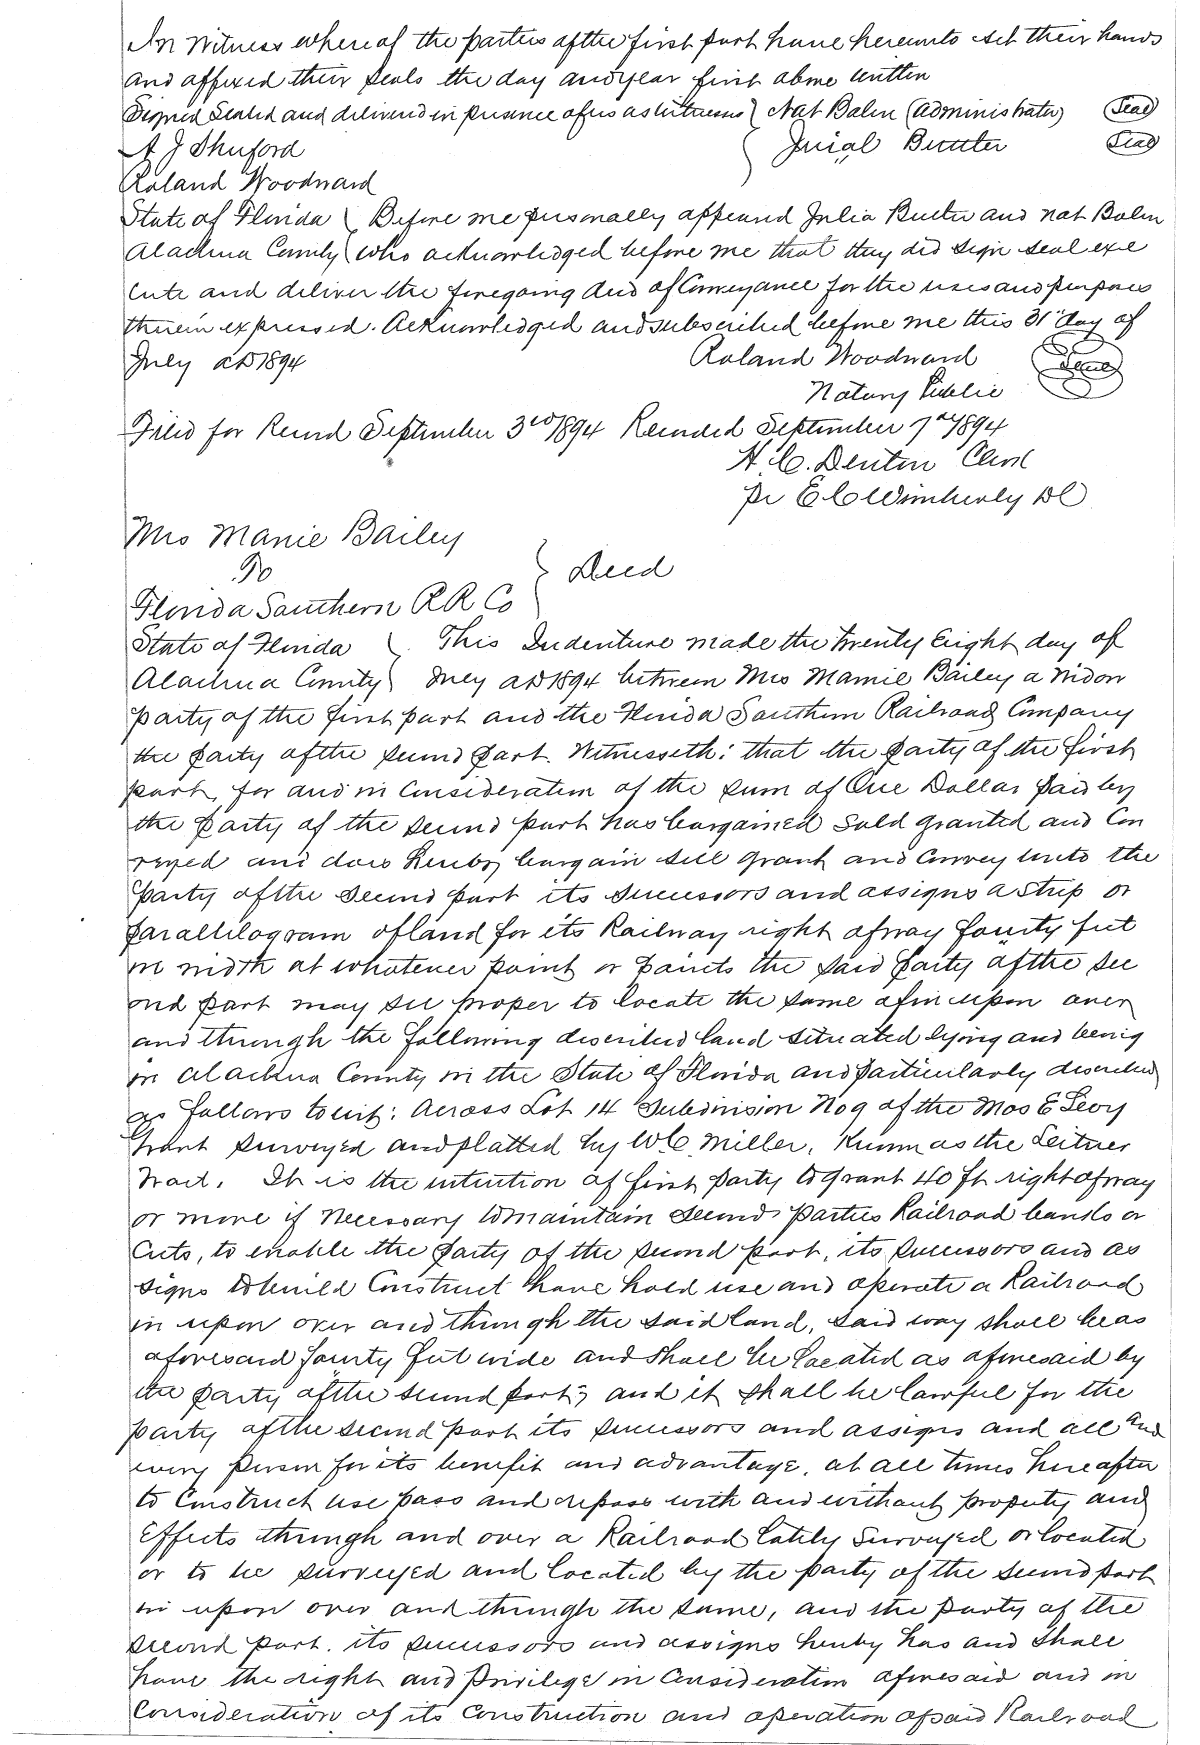 In Witness whereof the parties of the first part have hereunto set their hands
and affixed their seals the day and year first above written
Signed Sealed and delivered in presence of us as Witnesses } Nat Balin (Administrator) (Seal)
A J Shuford } Juial Buttler (Seal)
Roland Woodward
State of Florida } Before me personally appeared Julia Butler and Nat Balin
Alachua County } who acknowledged before me that they did sign seal exe
cute and deliver the foregoing deed of Conveyance for the uses and purposes
therein expressed. Acknowledged and subscribed before me this 31st day of
July AD 1894 Roland Woodward (Seal)
Notary Public
Filed for Record September 3rd 1894 Recorded September 7th 1894
H. C. Denton Clerk
pr E C Wimberly DC
Mrs Manie Bailey
To } Deed
Florida Southern R R Co
State of Florida } This Indenture made the twenty Eight day of
Alachua County } July AD 1894 between Mrs Mamie Bailey a Widow
party of the first part and the Florida Southern Railroad Company
the party of the second part. Witnesseth: that the party of the first
part, for and in Consideration of the sum of One Dollar paid by
the party of the second part has bargained Sold granted and Con
veyed and does hereby bargain sell grant and Convey unto the
party of the second part its successors and assigns a strip or
parallilogram of land for its Railway right of way fourty feet
in width at whatever point or points the said party of the sec
ond part may see proper to locate the same of in upon over
and through the following described land situated lying and being
in Alachua County in the State of Florida and particularly described
as follows to wit: Across Lot 14 Subdivision No 9 of the Mos E Levy
Grant surveyed and platted by W C. Miller, Known as the Leitner
Tract. It is the intention of first party to grant 40 ft right of way
or more if necessary to maintain second parties Railroad banks or
Cuts, to enable the party of the second part, its successors and as
signs to build Construct have hold use and operate a Railroad
in upon over and through the said land, said way shall be as
aforesaid fourty feet wide and shall be located as aforesaid by
the party of the second part; and it shall be lawful for the
party of the second part its successors and assigns and all and
every person for its benefit and advantage, at all times hereafter
to Construct use pass and repass with and without property and
Effects through and over a Railroad lately surveyed or located
or to be surveyed and located by the party of the second part
in upon over and through the same, and the party of the
second part. its successors and assigns hereby has and shall
have the right and privilege in Consideration aforesaid and in
Consideration of its Construction and operation of said Railroad